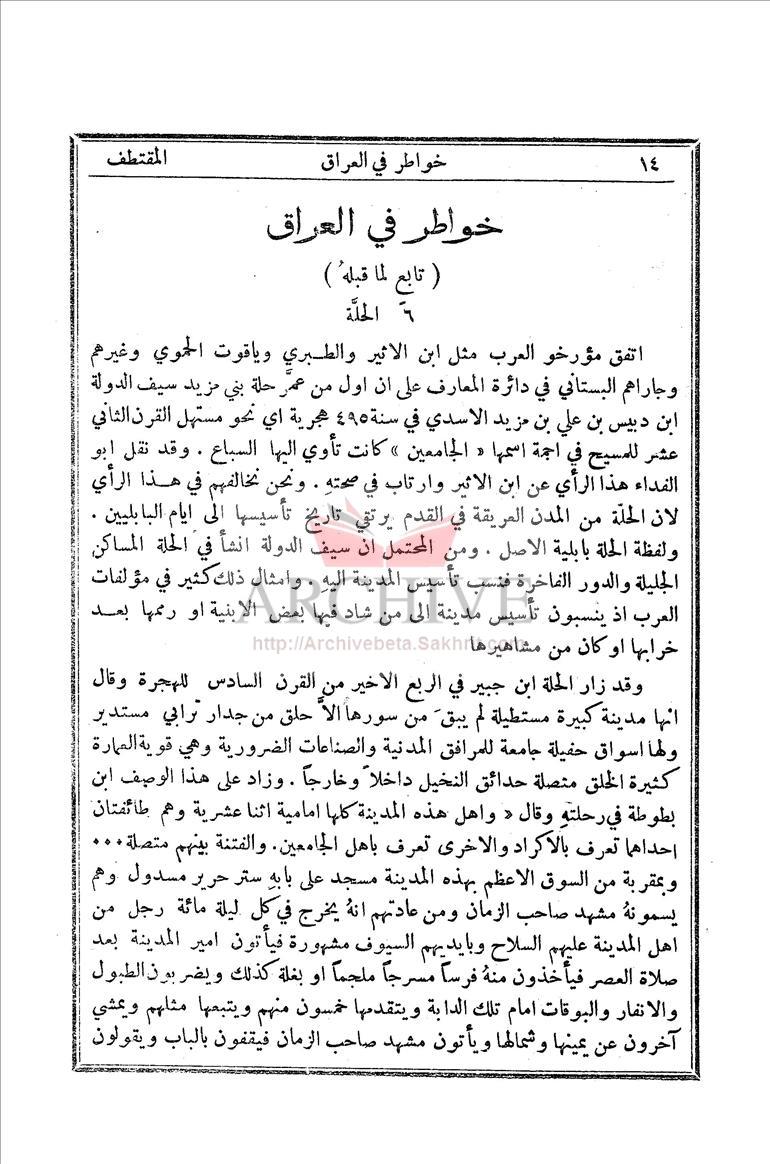 ١٤ خواطر في العراق المقتطف
خواطر في العراق
( تابع لما قبلهُ )
٦ً الحلَّة
اتفق مؤرخو العرب مثل ابن الاثير والطبري وياقوت الحموي وغيرهم
وجاراهم البستاني في دائرة المعارف على ان اول من عمَّر حلة بني مزيد سيف الدولة
ابن دبيس بن علي بن مزيد الاسدي في سنة ٤٩٥ هجرية اي نحو مستهل القرن الثاني
عشر للمسيح في اجمة اسمها « الجامعين » كانت تأوي اليها السباع . وقد نقل ابو
الفداء هذا الرأي عن ابن الاثير وارتاب في صحتهِ . ونحن نخالفهم في هذا الرأي
لان الحلّة من المدن العريقة في القدم يرتقي تاريخ تأسيسها الى ايام البابليين .
ولفظة الحلة بابلية الاصل . ومن المحتمل ان سيف الدولة انشأ في الحلة المساكن
الجليلة والدور الفاخرة فنسب تأسيس المدينة اليهِ . وامثال ذلك كثير في مؤلفات
العرب اذ ينسبون تأسيس مدينة الى من شاد فيها بعض الابنية او رممها بعد
خرابها او كان من مشاهيرها
وقد زار الحلة ابن جبير في الربع الاخير من القرن السادس للهجرة وقال
انها مدينة كبيرة مستطيلة لم يبقَ من سورها الاَّ حلق من جدار ترابي مستدير
ولها اسواق حفيلة جامعة للمرافق المدنية والصناعات الضرورية وهي قوية العمارة
كثيرة الخلق متصلة حدائق النخيل داخلاً وخارجاً . وزاد على هذا الوصف ابن
بطوطة في رحلتهِ وقال « واهل هذه المدينة كلها امامية اثنا عشرية وهم طائفتان
احداهما تعرف بالاكراد والاخرى تعرف باهل الجامعين. والفتنة بينهم متصلة٠٠٠
وبمقربة من السوق الاعظم بهذه المدينة مسجد على بابهِ ستر حرير مسدول وهم
يسمونهُ مشهد صاحب الزمان ومن عادتهم انهُ يخرج في كل ليلة مائة رجل من
اهل المدينة عليهم السلاح وبايديهم السيوف مشهورة فيأتون امير المدينة بعد
صلاة العصر فيأخذون منهُ فرساً مسرجاً ملجماً او بغلة كذلك ويضربون الطبول
والانفار والبوقات امام تلك الدابة ويتقدمها خمسون منهم ويتبعها مثلهم ويمشي
آخرون عن يمينها وشمالها ويأتون مشهد صاحب الزمان فيقفون بالباب ويقولون
ARCHIVE
http://Archivebeta.Sakhrit.com